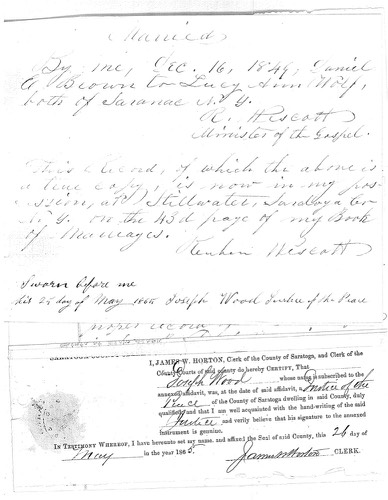 Married
By me, Dec. 16, 1849, Daniel
A. Brown to Lucy Ann Wolf,
both of Saranac N.Y.
R. Wescott
Minister of the Gospel.
This record, of which the above is
a true copy, is now in my pos-
ession, at Stillwater, Saratoga Co
N.Y. on the 43d page of my Book
of Marriages.
Reuben Wescott
Sworn before me
this 25 day of May 1865 Joseph Wood Justice of the Peace
I, JAMES W. HORTON, Clerk of the County of Saratoga, and Clerk of the
County Courts of said county do hereby CERTIFY, That
Joseph Wood whose name is subscribed to the
annexed affidavit, was, at the date of said affidavit, a Justice of the
Peace of the County of Saratoga dwelling in said County, duly
qualified and that I am well acquainted with the hand-writing of the said
Justice and verily believe that his signature to the annexed
instrument is genuine.
IN TESTIMONY WHEREOF, I have hereunto set my name, and affixed the Seal of said County, this 26 day of
May in the year 1865. James W Horton CLERK.